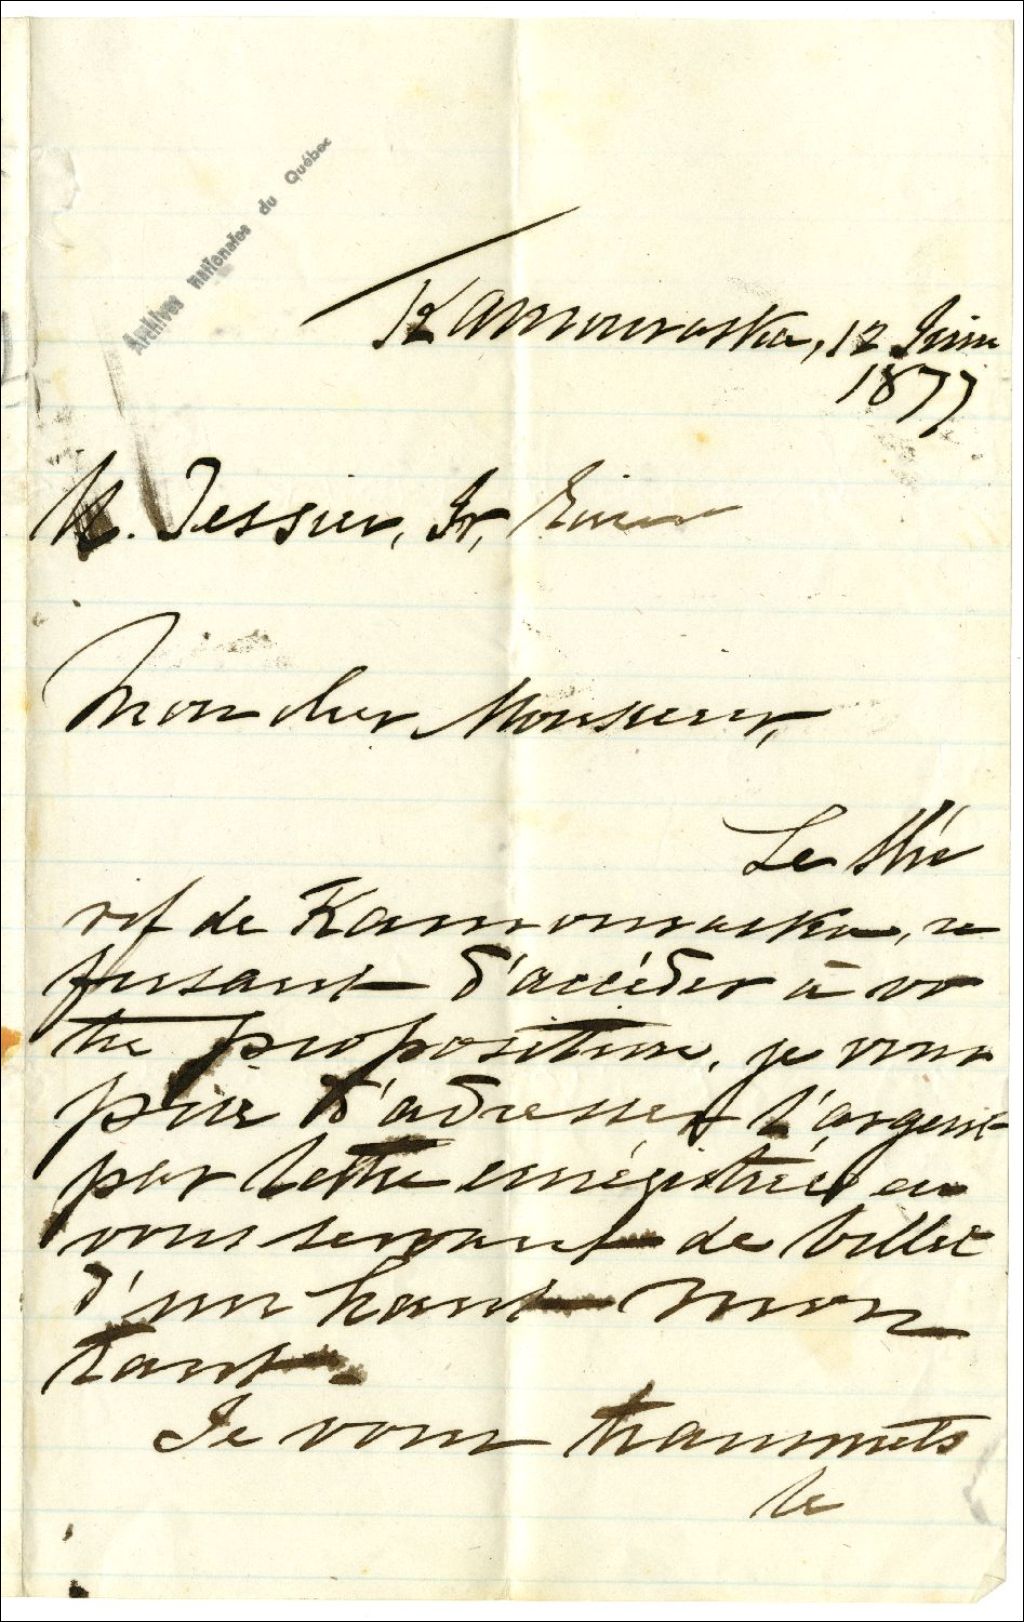 Archives nationales du Québec
Kamouraska, 12 Juin
1877
M. Tessier, Jr,
Mon cher Monsieur,
Le Shé
rif de Kamouraska, re
fusant d'accéder à vo
tre proposition, je vous
prie d'adresser l'argent
par lettre enrégistrée en
vous servant de billet
d'un haut mon
tant.
Je vous transmets
le